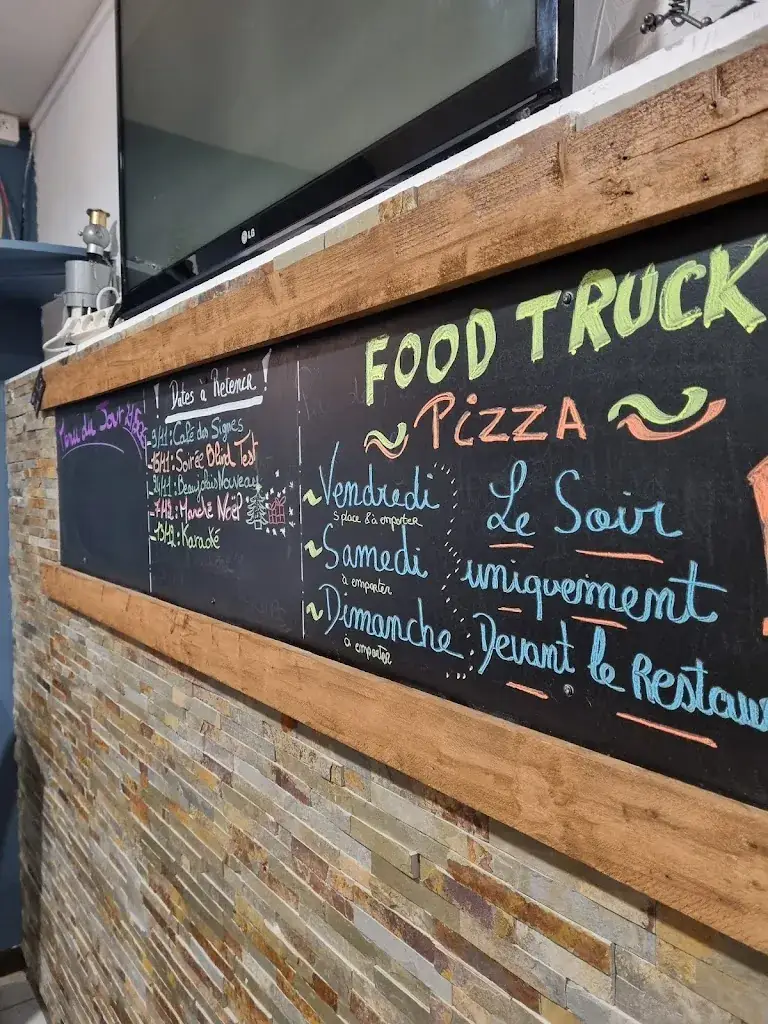 LG
Menu du Jour
! Dates à Retenir !
-9/11: Café des Signes
-15/11: Soirée Blind Test
: Beaujolais Nouveau
: Marché Noël
: Karaoké
FOOD TRUCK
PIZZA
~ Vendredi
S place & à emporter
~ Samedi
à emporter
~ Dimanche
à emporter
Le Soir
uniquement
Devant le Restau